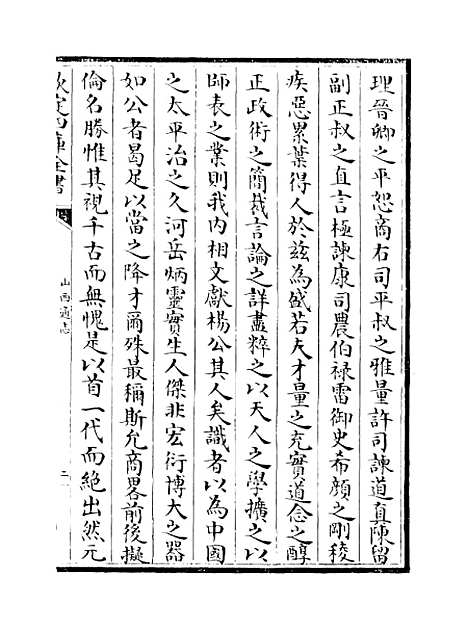 理晉卿之平恕商右司平叔之雅量許司諫道真陳留
副正叔之直言極諫康司農伯禄雷御史希顔之剛稜
疾惡累葉得人於兹為盛若夫才量之充實道念之醇
正政術之簡裁言論之詳盡粹之以天人之學擴之以
師表之業則我内相文獻楊公其人矣識者以為中國
之太平治之久河岳炳靈實生人傑非宏衍博大之器
如公者曷足以當之降才爾殊最稱斯允商畧前後擬
倫名勝惟其視千古而無愧是以首一代而絶出然元
欽定四庫全書
山西通志